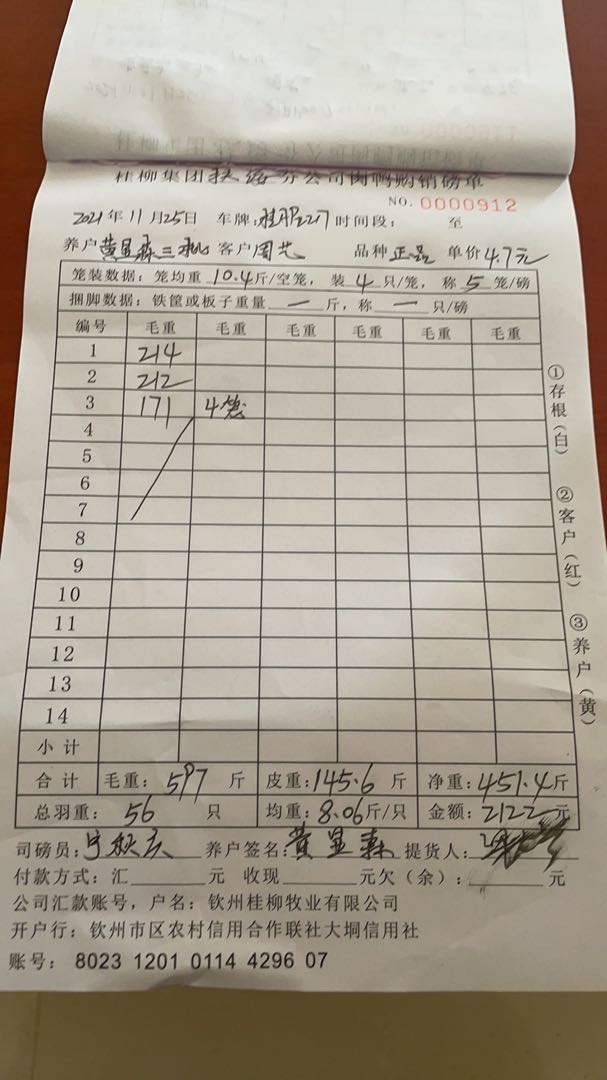 桂柳集团扶绥分公司肉鸭购销磅单
NO. 0000912
2021年11月25日 车牌:桂 227 时间段: 至
养户黄显森三 客户周芝 品种 正品 单价4.7元
笼装数据:笼均重 10.4斤/空笼,装 4 只/笼,称 5 笼/磅
捆脚数据:铁筐或板子重量 一 斤,称 一 只/磅
编号 毛重 毛重 毛重 毛重 毛重 毛重
1 214
2 212
3 171 4笼
4
5
6
7
8
9
10
11
12
13
14
小计
合计 毛重:597斤 皮重:145.6斤 净重:451.4斤
总羽重: 56 只 均重:8.06斤/只 金额:2122元
司磅员: 养户签名:黄显森 提货人:
付款方式:汇 元 收现 元欠(余): 元
公司汇款账号,户名:钦州桂柳牧业有限公司
开户行:钦州市区农村信用合作联社大垌信用社
账号: 8023 1201 0114 4296 07
①存根(白)
②客户(红)
③养户(黄)